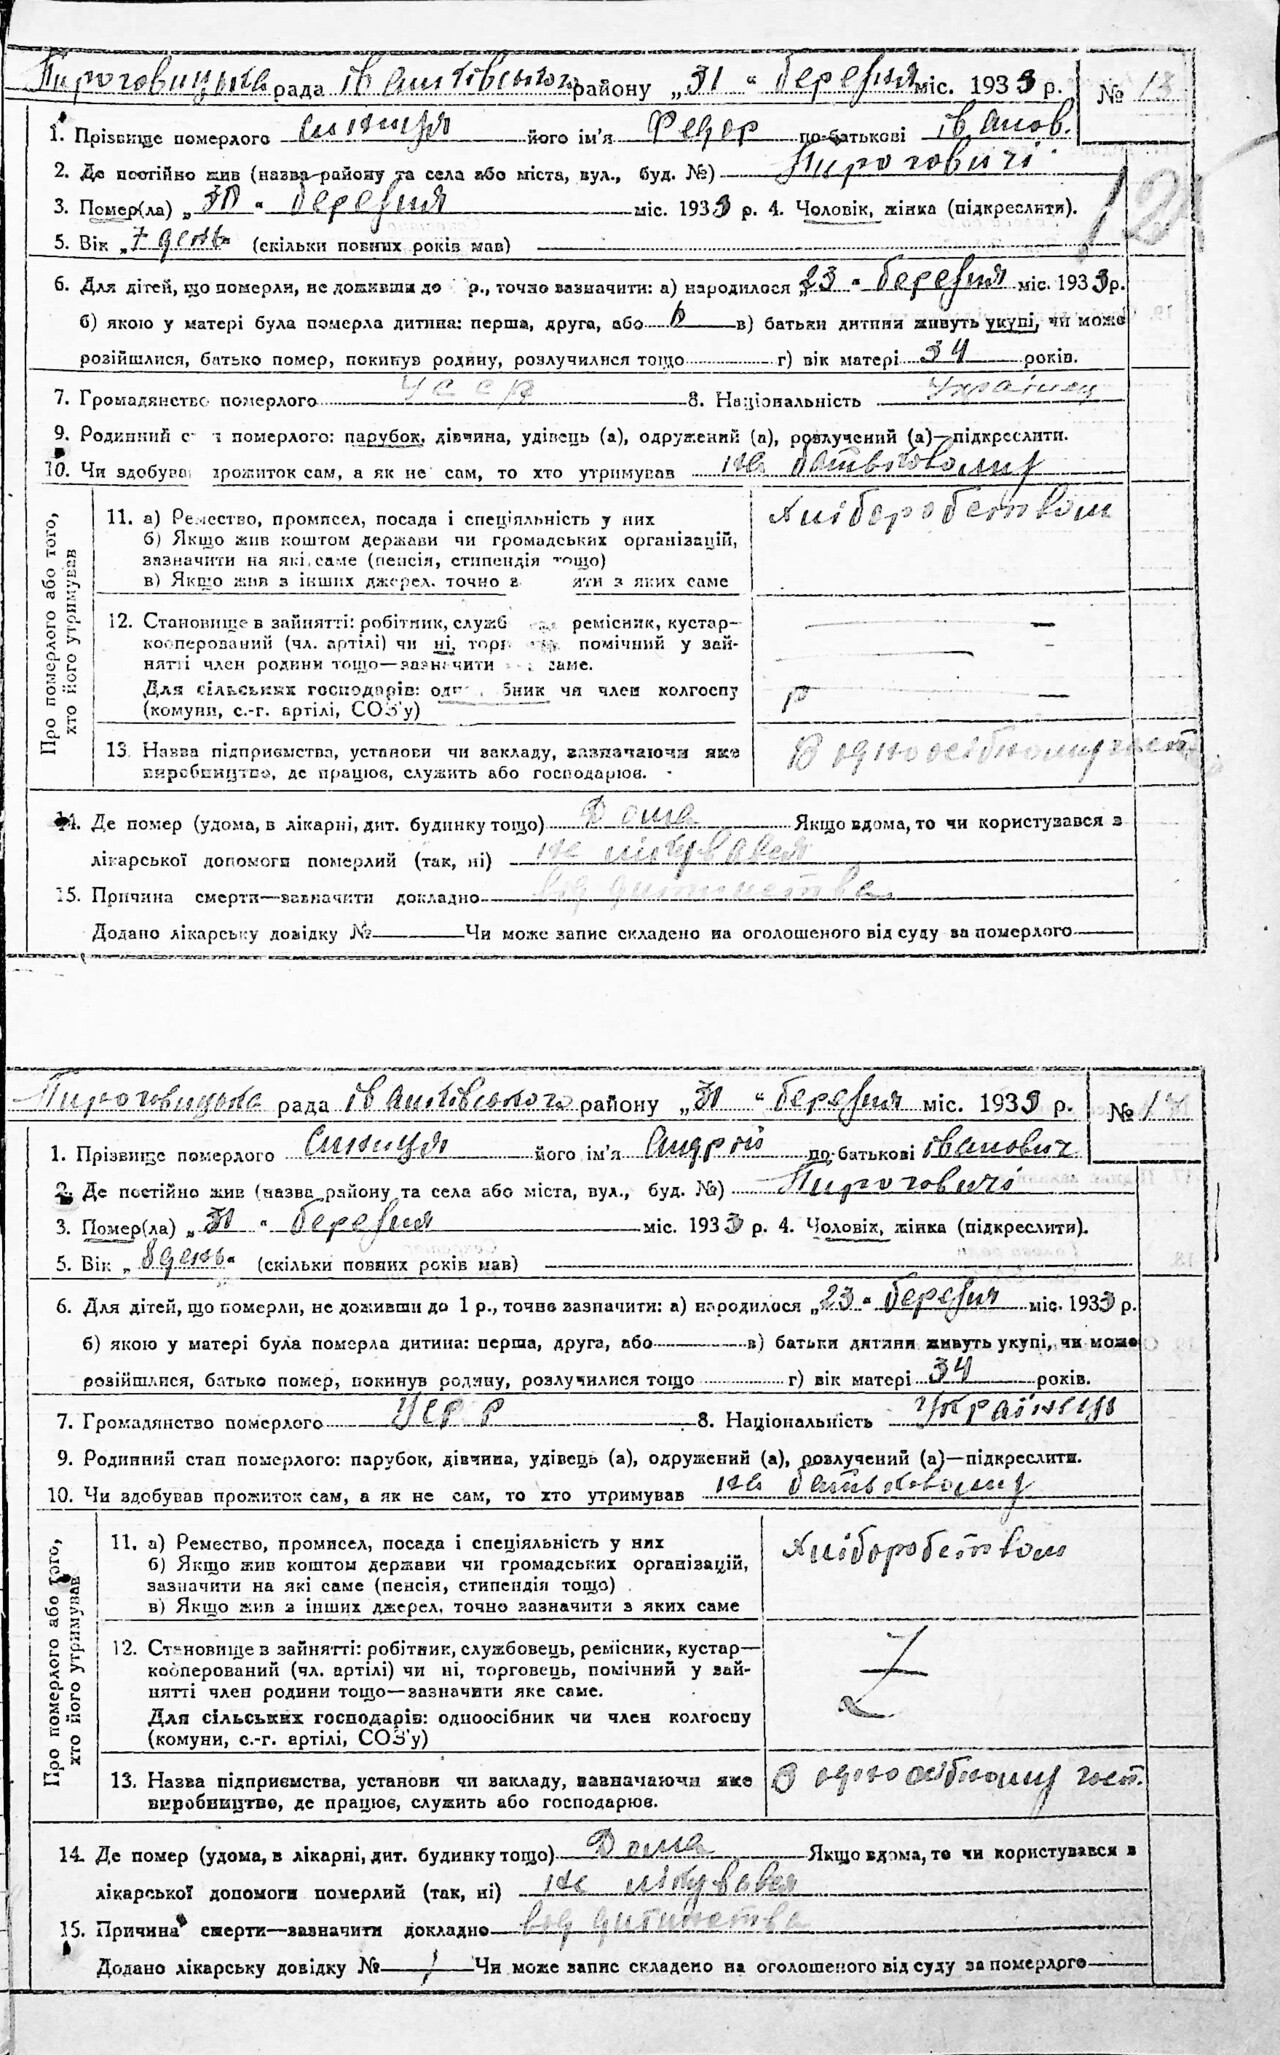 Пироговицька рада Іванківського району „31 “ березня міс. 1933 р. № 13
1. Прізвище померлого Синиця його ім'я Федор по-батькові Іванов.
2. Де постійно жив (назва району та села або міста, вул., буд. №) Пироговичі
3. Помер(ла) „ 30 “ березня міс. 1933 р. 4. Чоловік, жінка (підкреслити).
5. Вік „7 день“ (скільки повних років мав)
6. Для дітей, що померли, не доживши до р., точно вазначити: а) народилося „23 “ березня міс. 1933р.
б) якою у матері була померла дитина: перша, друга, або 6 в) батьки дитини живуть укупі, чи може
розійшлися, батько помер, покинув родину, розлучилися тощо г) вік матері 34 років.
7. Громадянство померлого УССР 8. Національність Українец
9. Родинний с померлого: парубок, дівчина, удівець (а), одружений (а), розлучений (а)—підкреслити.
10. Чи здобува прожиток сам, а як не сам, то хто утримував на батьковому
Про померлого або того, хто його утримував
11. а) Ремество, промисел, посада і спеціяльність у них Хліборобством
б) Якщо жив коштом держави чи громадських організацій,
зазначити на які саме (пенсія, стипендія тощо)
в) Якщо жив з інших джерел, точно з яти з яких саме
12. Становище в зайнятті: робітник, служб ремісник, кустар—
кооперований (чл. артілі) чи ні, торг помічний у зай-
нятті член родини тощо—зазначити саме.
Для сільських господарів: одн бник чи член колгоспу
(комуни, с.-г. артілі, СОЗ'у)
13. Назва підприємства, установи чи закладу, вазначаючи яке В одноосібному гост
виробництво, де працює, служить або господарює.
14. Де помер (удома, в лікарні, дит. будинку тощо) Дома Якщо вдома, то чи користувався в
лікарської допомоги померлий (так, ні) не лікувався
15. Причина смерти—вазначити докладно від дитинства
Додано лікарську довідку № Чи може запис складено на оголошеного від суду за померлого
Пироговицька рада Іванківського району „31 “ березня міс. 1933 р. № 17
1. Прізвище померлого Синиця його ім'я Андрій по-батькові Іванович
2. Де постійно жив (назва району та села або міста, вул., буд. №) Пироговичі
3. Помер(ла) „ 31 “ березня міс. 1933 р. 4. Чоловік, жінка (підкреслити).
5. Вік „ 8 день “ (скільки повних років мав)
6. Для дітей, що померли, не доживши до 1 р., точно зазначити: а) народилося „23 “ березня міс. 1933 р.
б) якою у матері була померла дитина: перша, друга, або в) батьки дитини живуть укупі, чи може
розійшлися, батько помер, покинув родину, розлучилися тощо г) вік матері 34 років.
7. Громадянство померлого УСРР 8. Національність Українець
9. Родинний стан померлого: парубок, дівчина, удівець (а), одружений (а), розлучений (а)—підкреслити.
10. Чи здобував прожиток сам, а як не сам, то хто утримував на батьковому
Про померлого або того, хто його утримував
11. а) Ремество, промисел, посада і спеціяльність у них Хліборобством
б) Якщо жив коштом держави чи громадських організацій,
зазначити на які саме (пенсія, стипендія тощо)
в) Якщо жив з інших джерел, точно зазначити з яких саме
12. Становище в зайнятті: робітник, службовець, ремісник, кустар—
кооперований (чл. артілі) чи ні, торговець, помічний у зай-
нятті член родини тощо—зазначити яке саме.
Для сільських господарів: одноосібник чи член колгоспу
(комуни, с.-г. артілі, СОЗ'у)
13. Назва підприємства, установи чи закладу, вазначаючи яке В одноосібному гост.
виробництво, де працює, служить або господарює.
14. Де помер (удома, в лікарні, дит. будинку тощо) Дома Якщо вдома, то чи користувався в
лікарської допомоги померлий (так, ні) не лікувався
15. Причина смерти—зазначити докладно від дитинства
Додано лікарську довідку № Чи може запис складено на оголошеного від суду за померлого